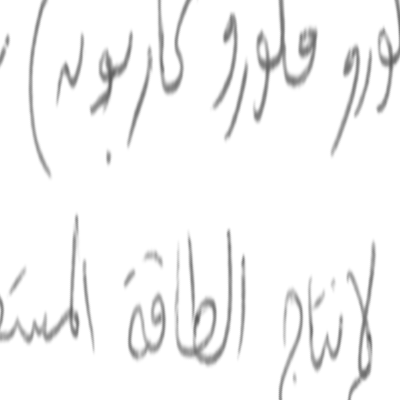 لورو فلورو كاربون)
لإنتاج الطاقة المستـ